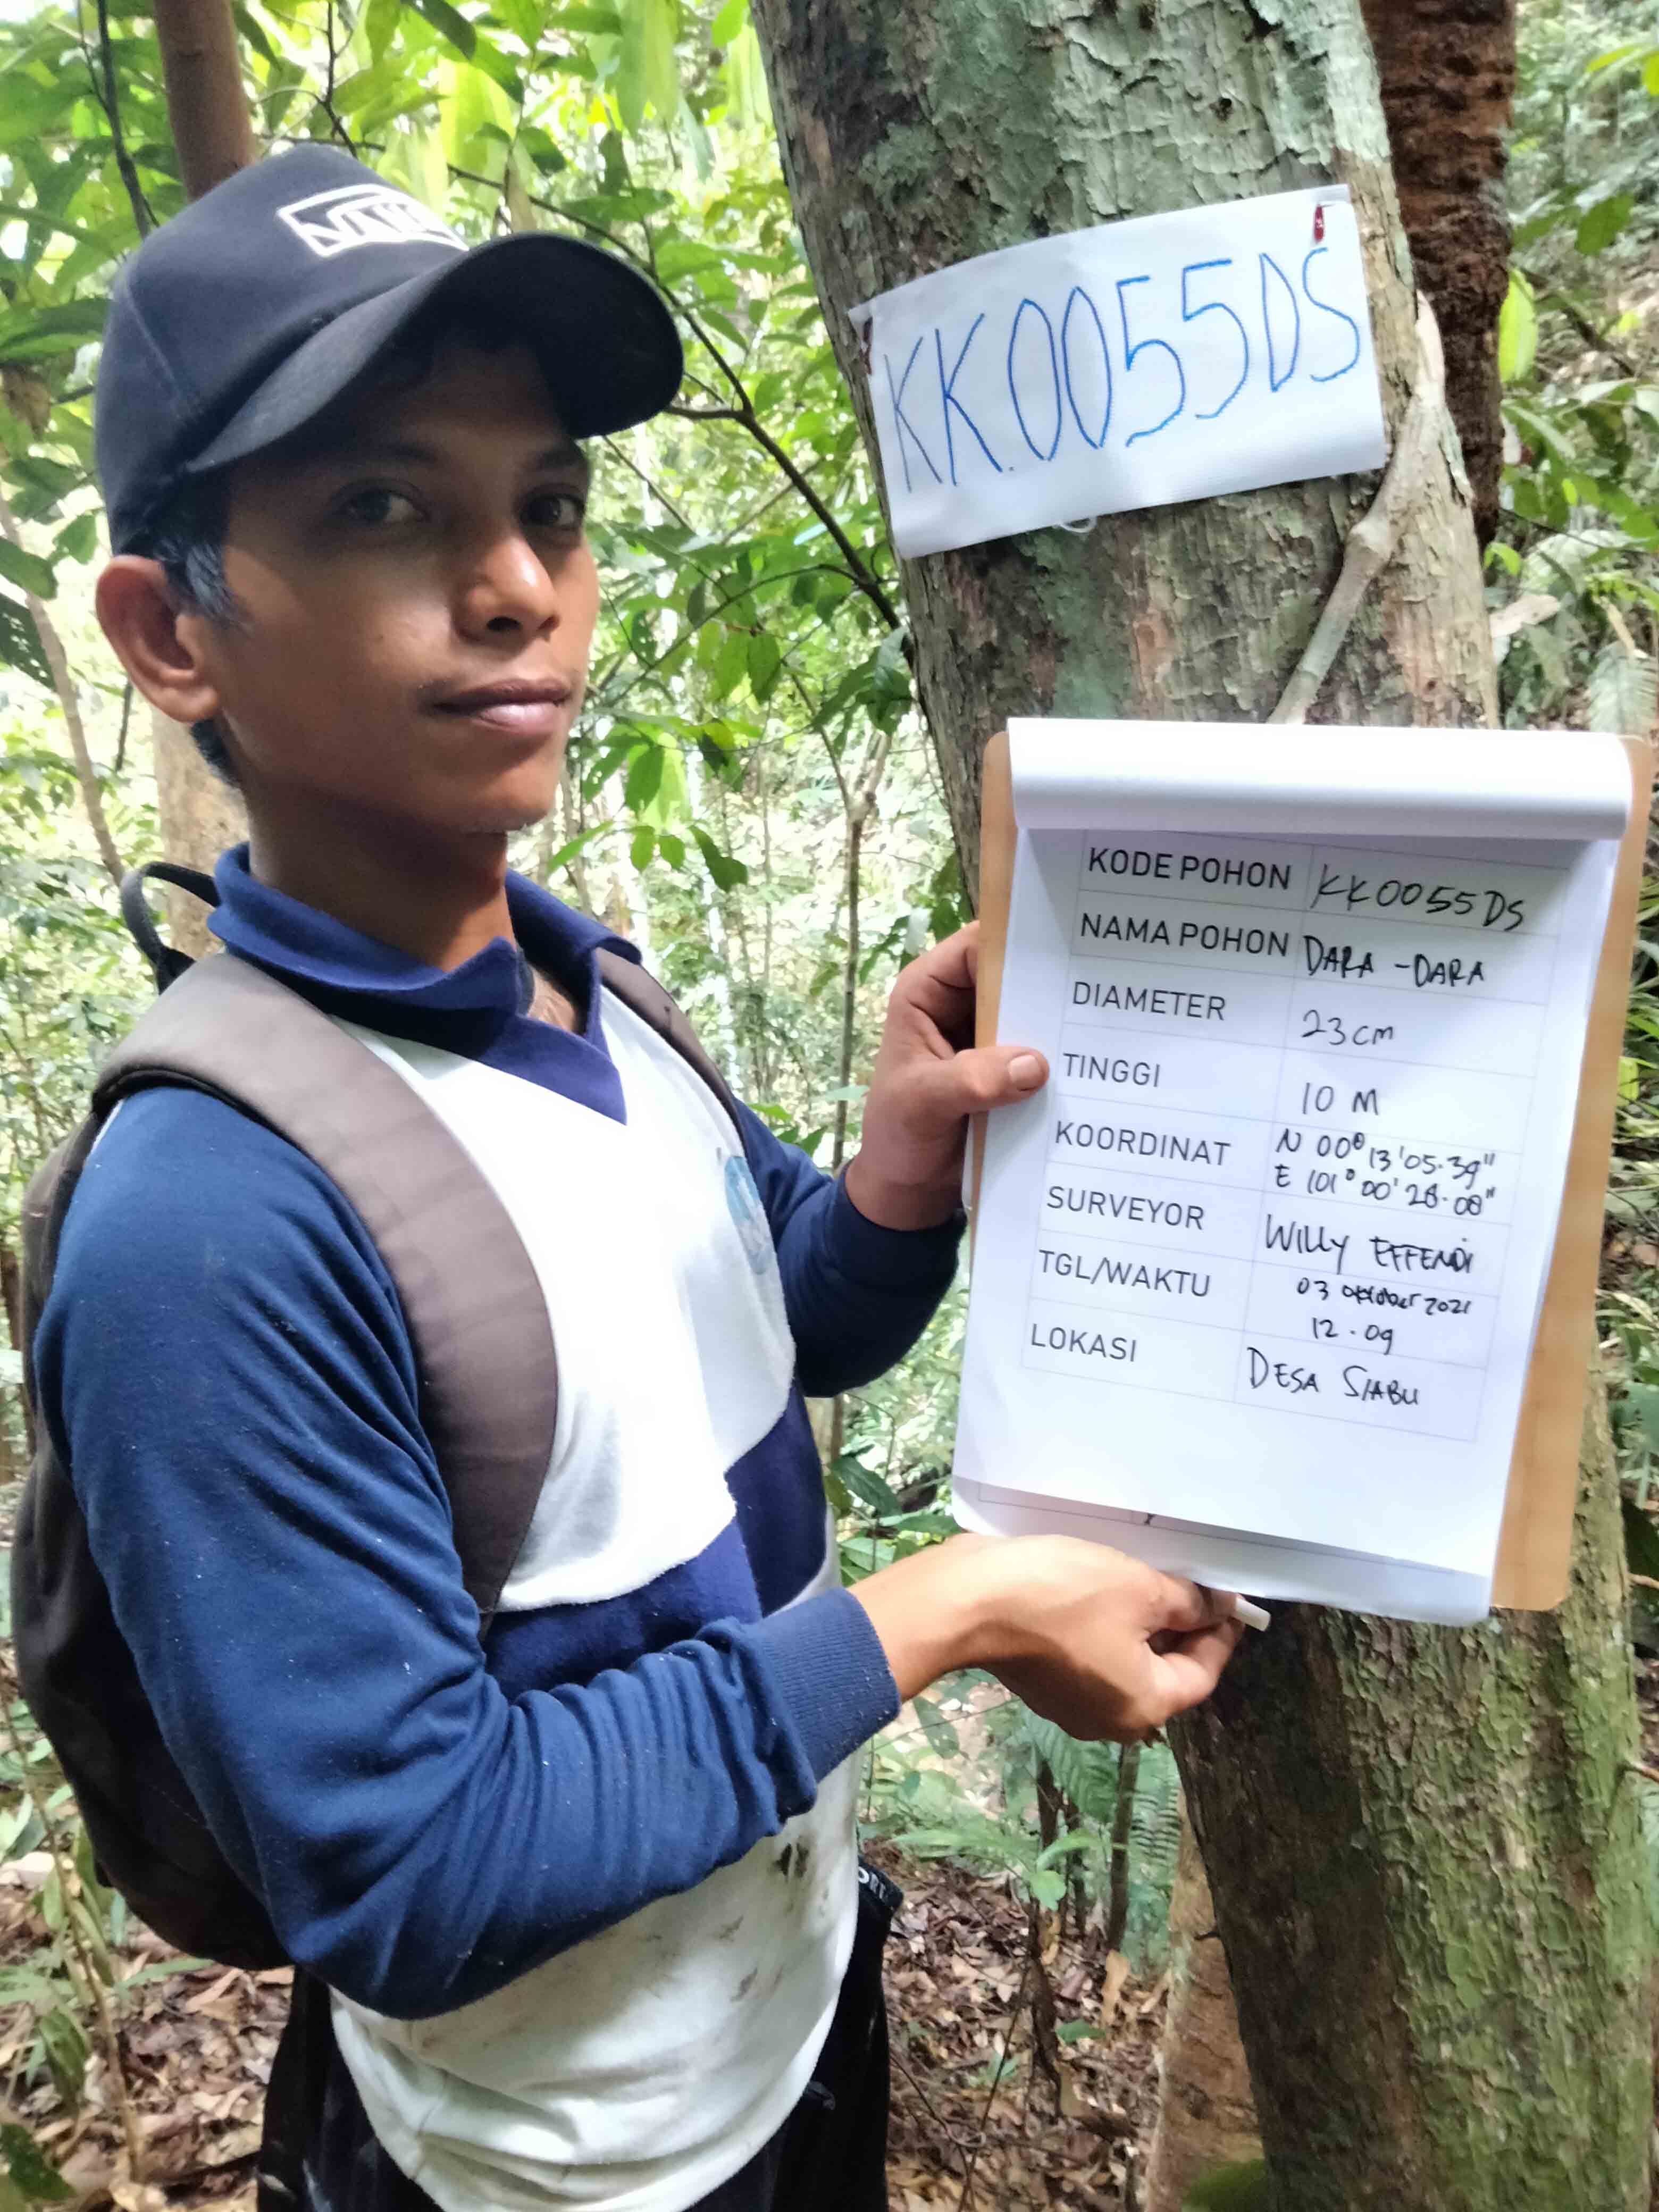 KK.0055DS
KODE POHON KK0055DS
NAMA POHON DARA-DARA
DIAMETER 23 cm
TINGGI 10 M
KOORDINAT N 00° 13'05.39"
E 101° 00' 28.08"
SURVEYOR WILLY EFFENDI
TGL/WAKTU 03 Oktober 2021
12.09
LOKASI DESA SIABU